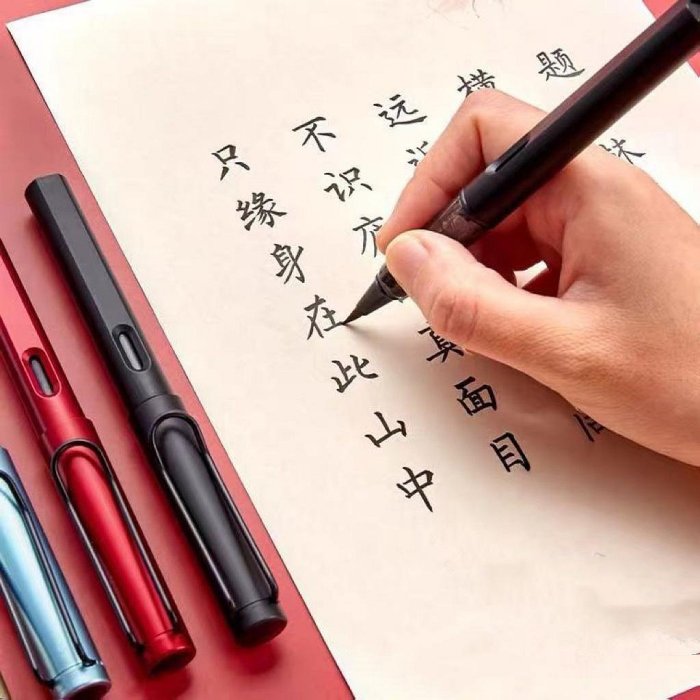 题林
横
远
不识真面目
只缘身在此山中